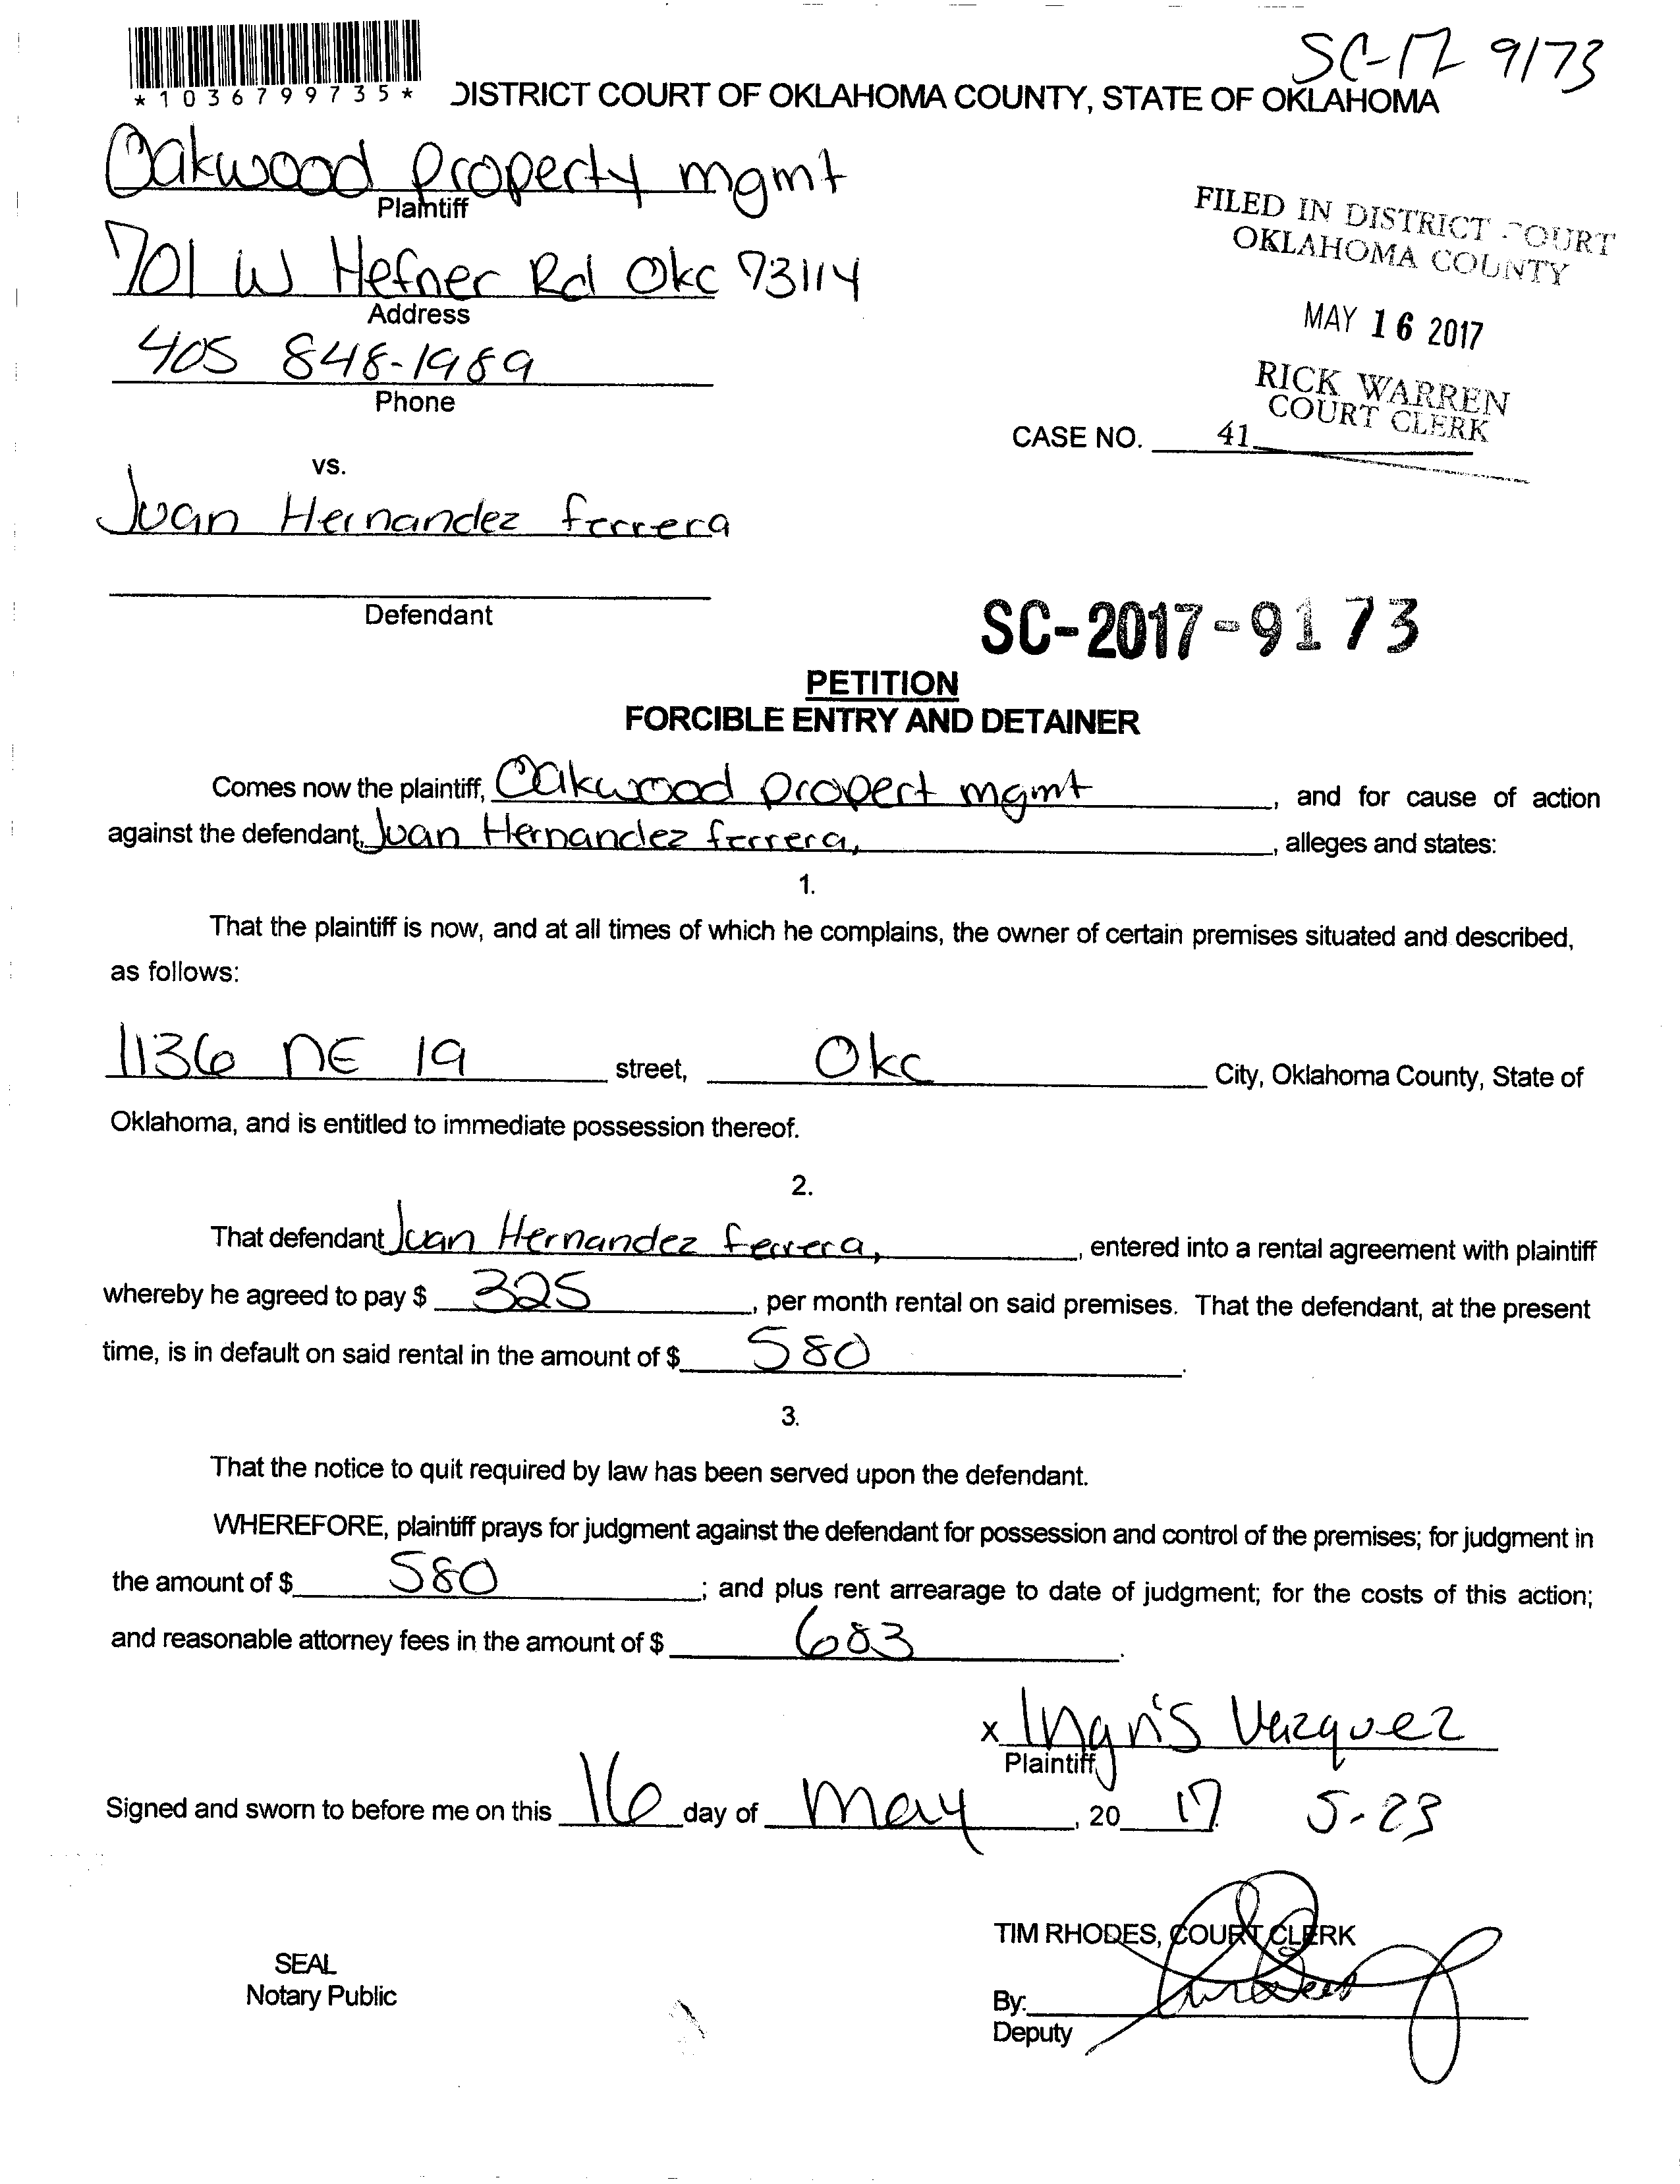 SC-17 9173
*1036799735*
DISTRICT COURT OF OKLAHOMA COUNTY, STATE OF OKLAHOMA
Oakwood property mgmt
Plaintiff
701 W Hefner Rd Okc 73114
Address
405 848-1989
Phone
FILED IN DISTRICT COURT
OKLAHOMA COUNTY
MAY 16 2017
RICK WARREN
COURT CLERK
CASE NO. 41
vs.
Juan Hernandez ferrera
Defendant
SC-2017-9173
PETITION
FORCIBLE ENTRY AND DETAINER
Comes now the plaintiff, Oakwood propert mgmt, and for cause of action
against the defendant, Juan Hernandez ferrera, , alleges and states:
1.
That the plaintiff is now, and at all times of which he complains, the owner of certain premises situated and described,
as follows:
1136 NE 19 street, Okc City, Oklahoma County, State of
Oklahoma, and is entitled to immediate possession thereof.
2.
That defendant Juan Hernandez ferrera, , entered into a rental agreement with plaintiff
whereby he agreed to pay $ 325, per month rental on said premises. That the defendant, at the present
time, is in default on said rental in the amount of $ 580.
3.
That the notice to quit required by law has been served upon the defendant.
WHEREFORE, plaintiff prays for judgment against the defendant for possession and control of the premises; for judgment in
the amount of $ 580; and plus rent arrearage to date of judgment; for the costs of this action;
and reasonable attorney fees in the amount of $ 683.
x Ingris Vazquez
Plaintiff
Signed and sworn to before me on this 16 day of May, 20 17. 5-23
TIM RHODES, COURT CLERK
SEAL
Notary Public
By:
Deputy